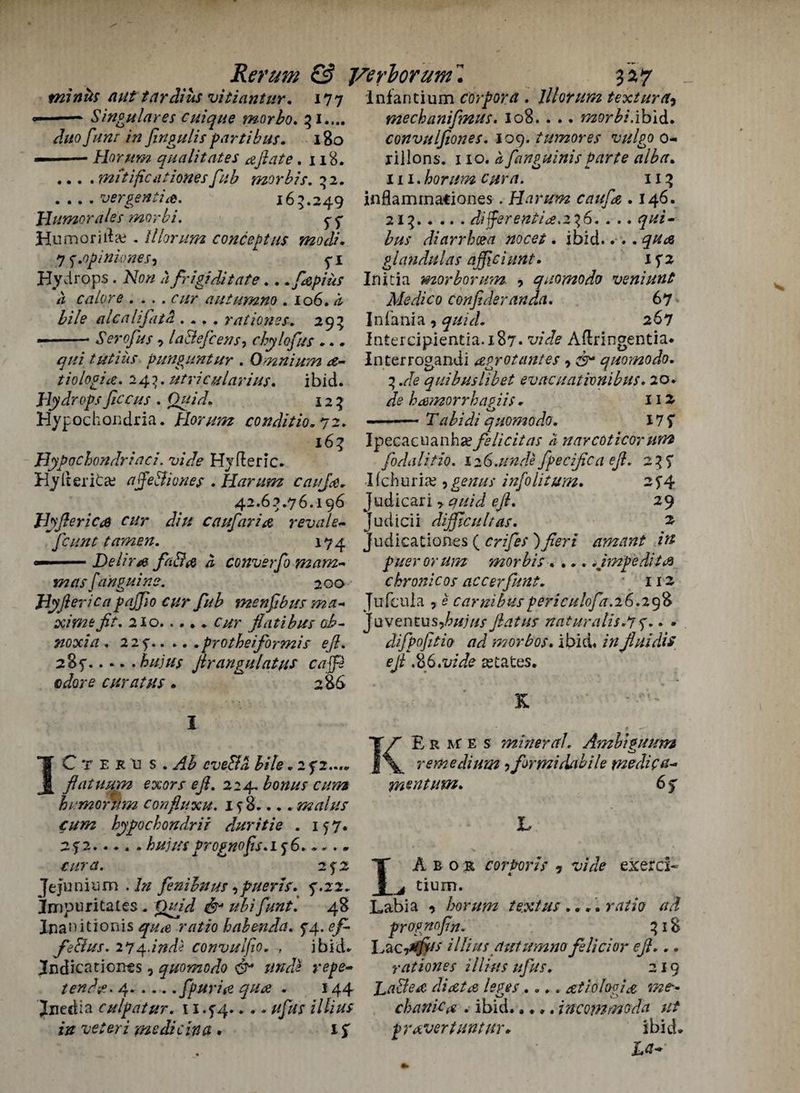 Rerum & Verborum. 327
minùs aut tardiùs vitiantur. 177
—— Singulares cuique morbo. 31....
duo sunt in singulis partibus. 180
—— Horum qualitates æstate. 118.
.... mitificationes sub morbis. 32.
.... vergentiæ. 163.249
Humorales morbi. 55
Humoristæ . illorum conceptus modi.
75.opiniones, 51
Hydrops. Non à frigiditate ... sæpiùs
à calore .... cur autumno . 106. à
bile alcalisatâ .... rationes. 293
—— Serosus , lactescens, chylosus ...
qui tutiùs punguntur . Omnium æ-
tiologiæ. 243. utricularius. ibid.
Hydrops siccus . Quid. 123
Hypochondria. Horum conditio. 72.
163
Hypochondriaci. vide Hysteric.
Hystericæ affectiones . Harum causæ.
42.63.76.196
Hystericæ cur diu causariæ revale-
scunt tamen. 174
—— Deliræ factæ à converso mam-
mas sanguine. 200
Hysterica passio cur sub mensibus ma-
ximè fit. 210..... cur flatibus ob-
noxia . 225..... protheiformis est.
285..... hujus strangulatus cassi
odore curatus . 286
I
ICTERUS . Ab evectâ bile . 252....
flatuum exors est. 224. bonus cum
humorum confluxu. 158.... malus
cum hypochondrii duritie . 157.
252..... hujus prognosis. 156.....
cura. 252
Jejunium . In senibuus , pueris. 5.22.
Impuritates . Quid & ubi sunt. 48
Inanitionis quæ ratio habenda. 54. ef-
fectus. 274.indè convulsio. , ibid.
Indicationes , quomodo & undè repe-
tendæ. 4...... spuriæ quæ . 144
Inedia culpatur. 11.54.... usus illius
in veteri medicina . 15
Infantium corpora . Illorum textura,
mechanismus. 108.... morbi.ibid.
convulsiones. 109. tumores vulgo o-
rillons. 110. à sanguinis parte alba.
111. horum cura. 113
inflammationes . Harum causæ . 146.
213..... differentiæ.236.... qui-
bus diarrhœa nocet . ibid.... quæ
glandulas afficiunt. 152
Initia morborum , quomodo veniunt
Medico consideranda. 67
Insania , quid. 267
Intercipientia. 187. vide Astringentia.
Interrogandi ægrotantes , & quomodo.
3.de quibuslibet evacuationibus. 20.
de hæmorrhagiis. 112
—— Tabidi quomodo. 175
Ipecacuanhæ felicitas à narcoticorum
sodalitio. 126.undè specifica est. 235
Ischuriæ , genus insolitum. 254
Judicari , quid est. 29
Judicii difficultas. 2
Judicationes ( crises ) fieri amant in
puerorum morbis ..... impeditæ
chronicos accersunt. 112
Juscula , è carnibus periculosa.26.298
Juventus, hujus status naturalis. 75...
dispositio ad morbos. ibid. in fluidis
est .86. vide ætates.
K
KERMES mineral. Ambiguum
remedium , formidabile medica-
mentum. 65
L
LABOR corporis , vide exerci-
tium.
Labia , horum textus .... ratio ad
prognosin. 318
Lac, usus illius autumno felicior est...
rationes illius usus. 219
Lacteæ diætæ leges .... ætiologiæ me-
chanicæ . ibid..... incommoda ut
prævertuntur. ibid.
La-